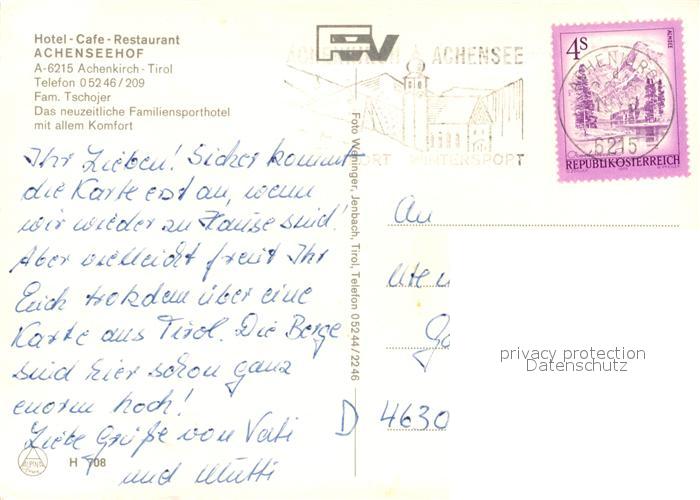 Hotel-Cafe-Restaurant
ACHENSEEHOF
A-6215 Achenkirch-Tirol
Telefon 05246/209
Fam. Tschojer
Das neuzeitliche Familiensporthotel
mit allem Komfort
Ihr Lieben! Sicher kommt
die Karte erst an, wenn
wir wieder zu Hause sind!
Aber vielleicht freut Ihr
Euch trotzdem über eine
Karte aus Tirol. Die Berge
sind hier schon ganz
enorm hoch!
Liebe Grüße von Vati
und Mutti
H 708
Foto Weninger, Jenbach, Tirol, Telefon 05244/2246
ACHENSEE
WINTERSPORT
4S
ALMSEE
6215
REPUBLIK ÖSTERREICH
An
Ute
D 4630
privacy protection
Datenschutz